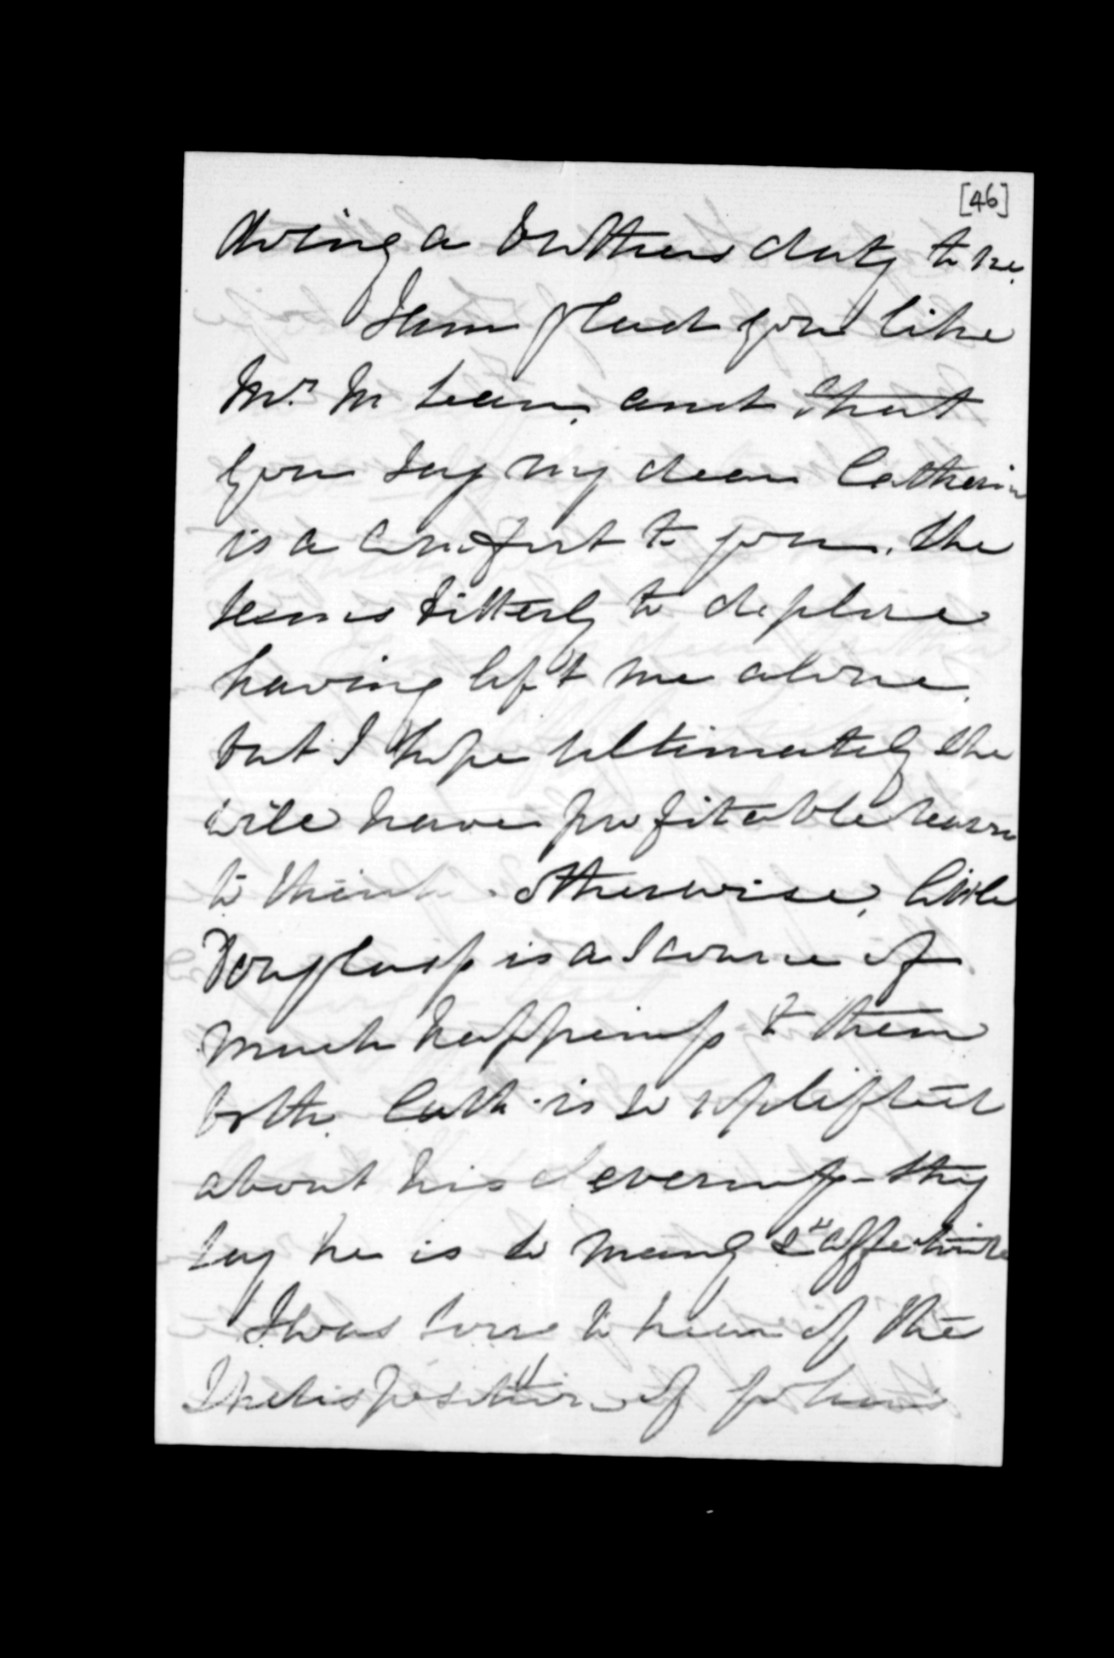 [46]
doing a brothers duty to me.
I am glad you like
Mr. McLean, and that
you say my dear Catherin
is a comfort to you. She
seems bitterly to deplore
having left me alone,
but I hope ultimately she
will have profitable reason
to think otherwise, little
Douglass is a source of
much happiness to them
both. Cath. is so uplifted
about his cleverness - they
say he is so manly & affectionate
I was sorry to hear of the
Indisposition of John's